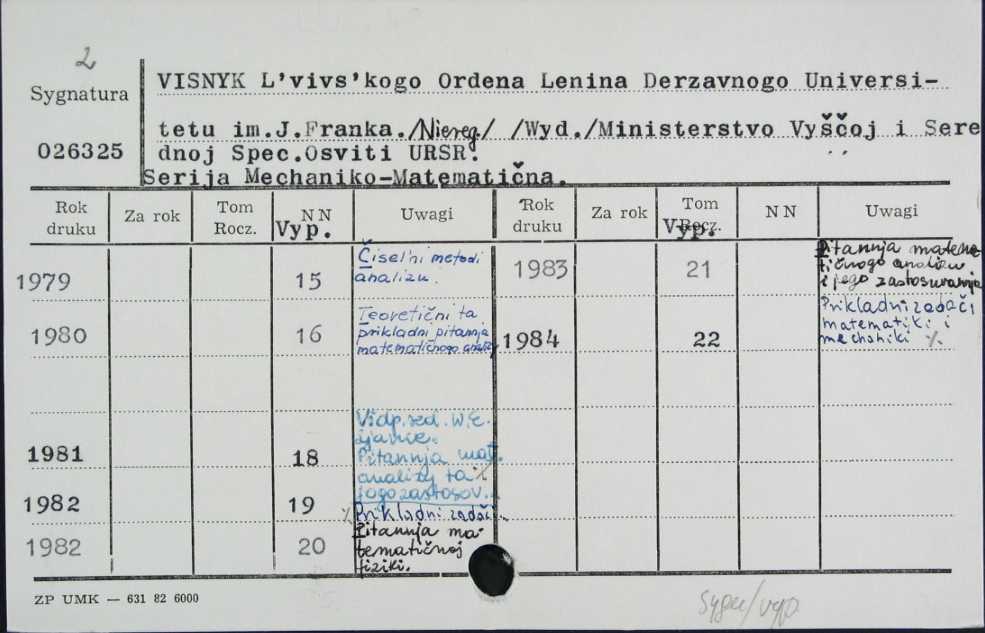 2
Sygnatura
026325
VISNYK L'vivs'kogo Ordena Lenina Derzavnogo Universi-
tetu im.J.Franka./Niereg/ /Wyd./Ministerstvo Vyščoj i Sere
dnoj Spec.Osviti URSR.
Serija Mechaniko-Matematična.
Rok druku Za rok Tom Rocz. NN Vyp. Uwagi Rok druku Za rok Tom Rocz. Vyp. NN Uwagi
1979 15 Čiselni metodi
analizu.
1980 16 Teoretični ta
prikladni pitannja
matematičnogo analizy
1981 18 Vidp.red. W.E.
Pitannja mat.
analizy ta
jogo zastosov.
1982 19 % Prikladni zadači.
1982 20 Pitannja ma-
tematičnoj
fiziki.
1983 21 Pitannja matema-
tičnogo analizu
i jego zastosuvannja
1984 22 Prikladni zadači
matematiki i
mechaniki %
ZP UMK — 631 82 6000
sygn/vyp